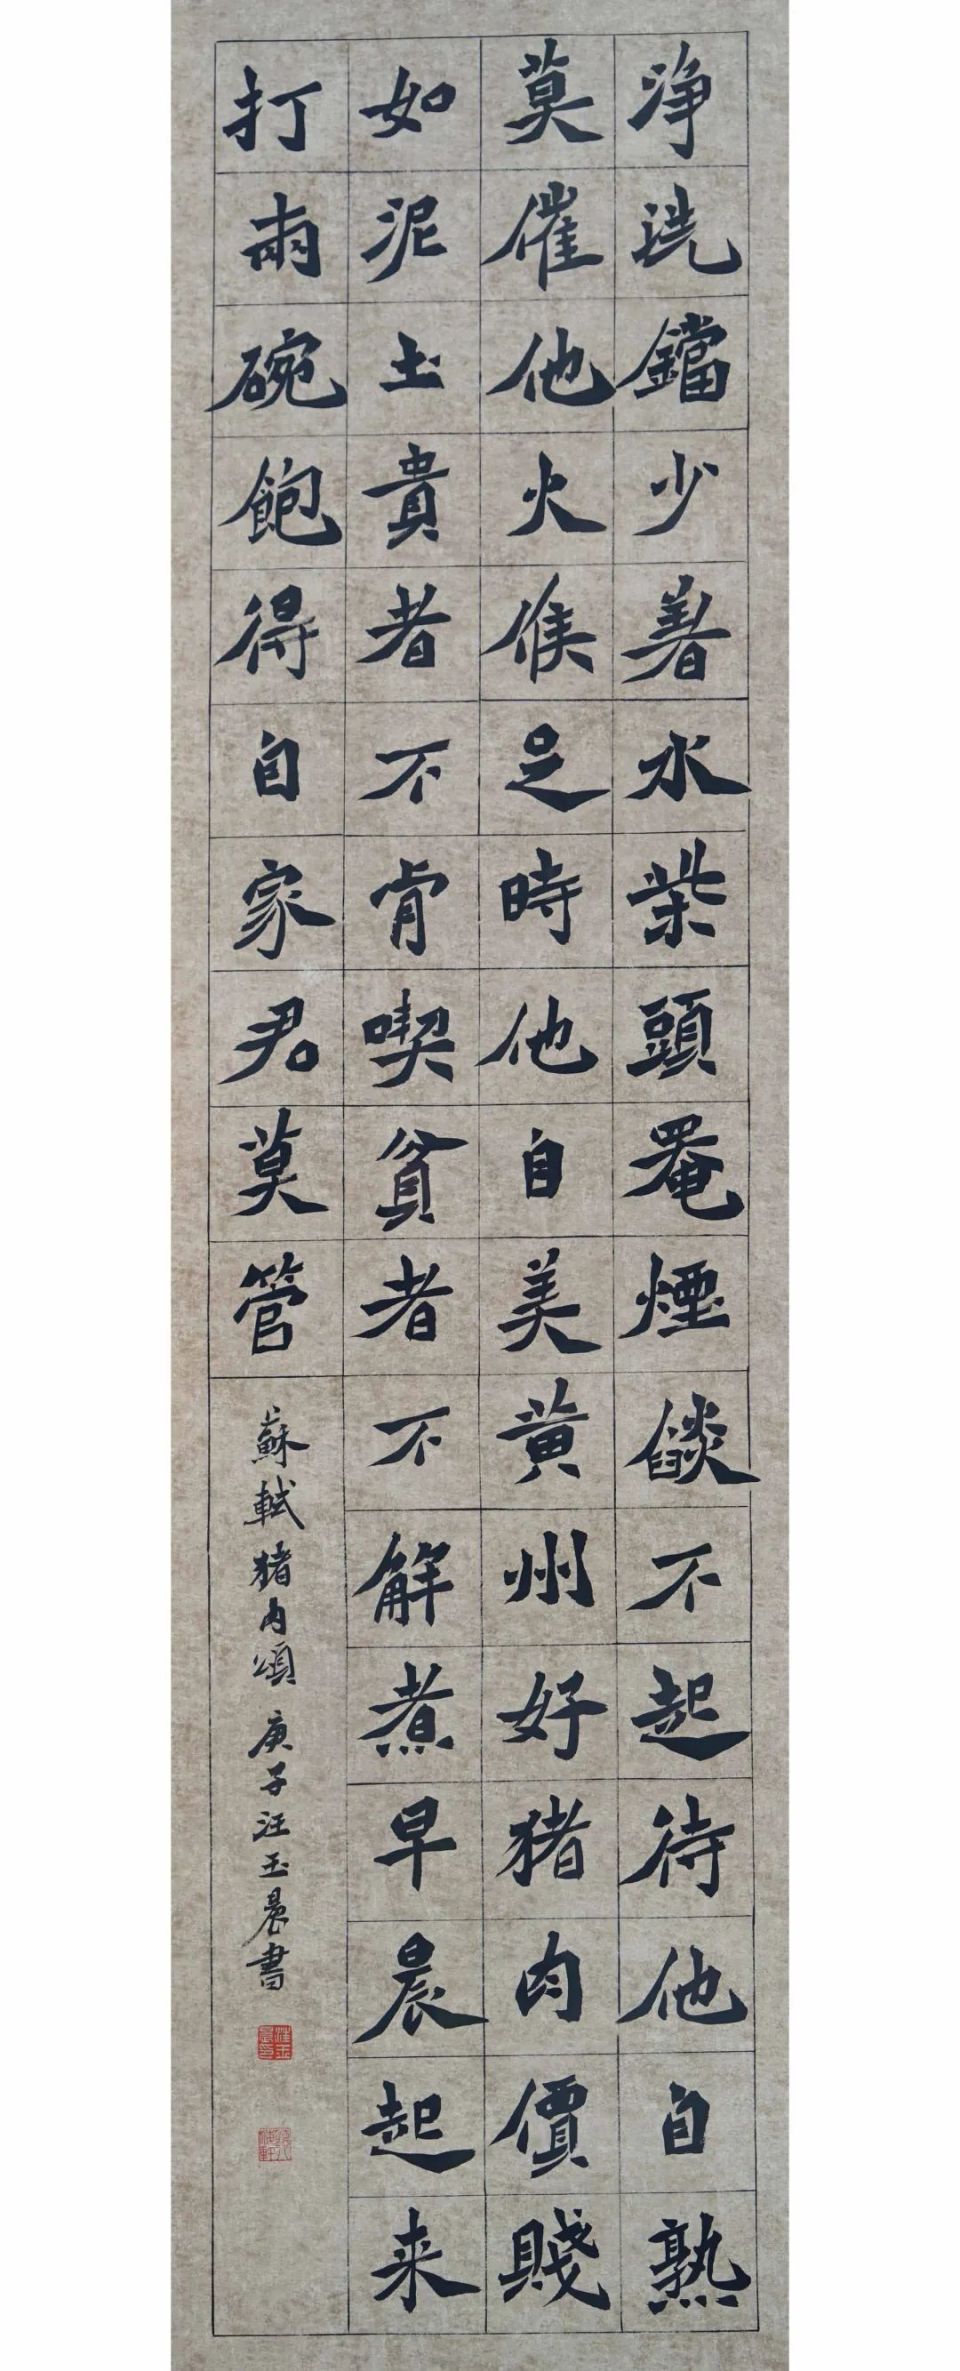 净洗鐺少著水柴頭罨煙燄不起待他自熟
莫催他火候足時他自美黄州好猪肉價賤
如泥土貴者不肯喫貧者不解煮早晨起来
打兩碗飽得自家君莫管
蘇軾猪肉頌 庚子汪玉晨書